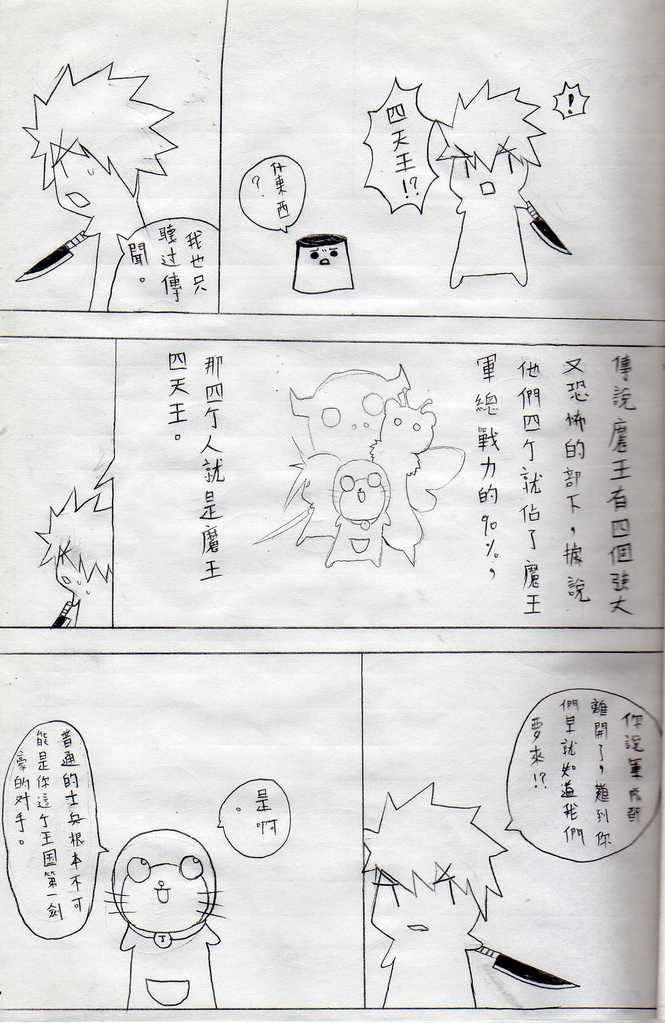 !
四天王!?
什東西
?
我也只
聽过傳
聞。
傳說魔王有四個強大
又恐怖的部下,據說
他們四个就佔了魔王
軍總戰力的90%,
那四个人就是魔王
四天王。
你說軍隊都
離開了,難到你
們早就知道我們
要來!?
是啊
。
普通的士兵根本不可
能是你這个王国第一劍
豪的对手。
J